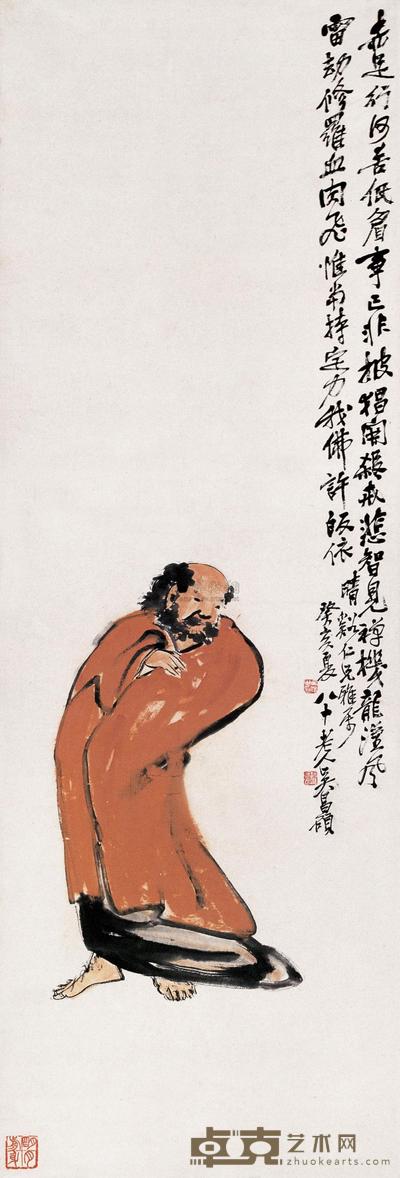 赤足行何苦低眉事已非披猖開殺戒悲智見禪機龍漢風
雷劫修羅血肉飛惟當持定力我佛許皈依
晴仁兄雅屬
癸亥夏
八十老人吳昌碩
卓克艺术网
zhuokearts.com